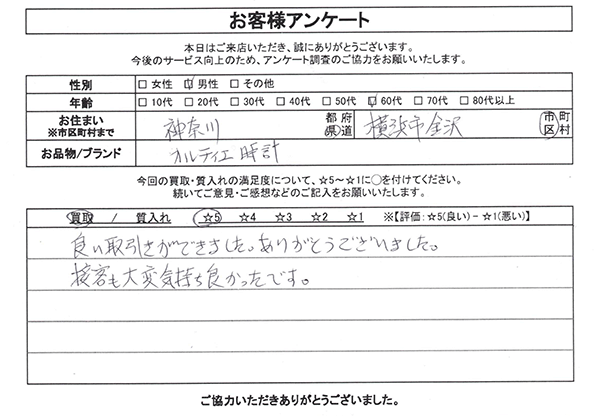 お客様アンケート
本日はご来店いただき、誠にありがとうございます。
今後のサービス向上のため、アンケート調査のご協力をお願いいたします。
性別 □ 女性 ☑ 男性 □ その他
年齢 □ 10代 □ 20代 □ 30代 □ 40代 □ 50代 ☑ 60代 □ 70代 □ 80代以上
お住まい ※市区町村まで 神奈川 都 府 県 道 横浜市金沢 市 町 区 村
お品物/ブランド カルティエ 時計
今回の買取・質入れの満足度について、☆5～☆1に○を付けてください。
続いてご意見・ご感想などのご記入をお願いいたします。
買取 / 質入れ ☆5 ☆4 ☆3 ☆2 ☆1 ※【評価:☆5(良い) - ☆1(悪い)】
良い取引きができました。ありがとうございました。
接客も大変気持ち良かったです。
ご協力いただきありがとうございました。